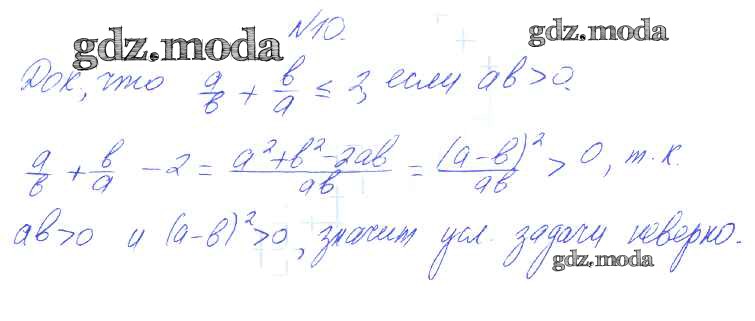 №10.
gdz.moda
gdz.moda
Док, что a/в + в/a ≤ 2, если aв>0.
a/в + в/a - 2 = (a²+в²-2aв)/aв = (a-в)²/aв > 0, т.к.
aв>0 и (a-в)²>0, значит усл. задачи неверно.
gdz.moda